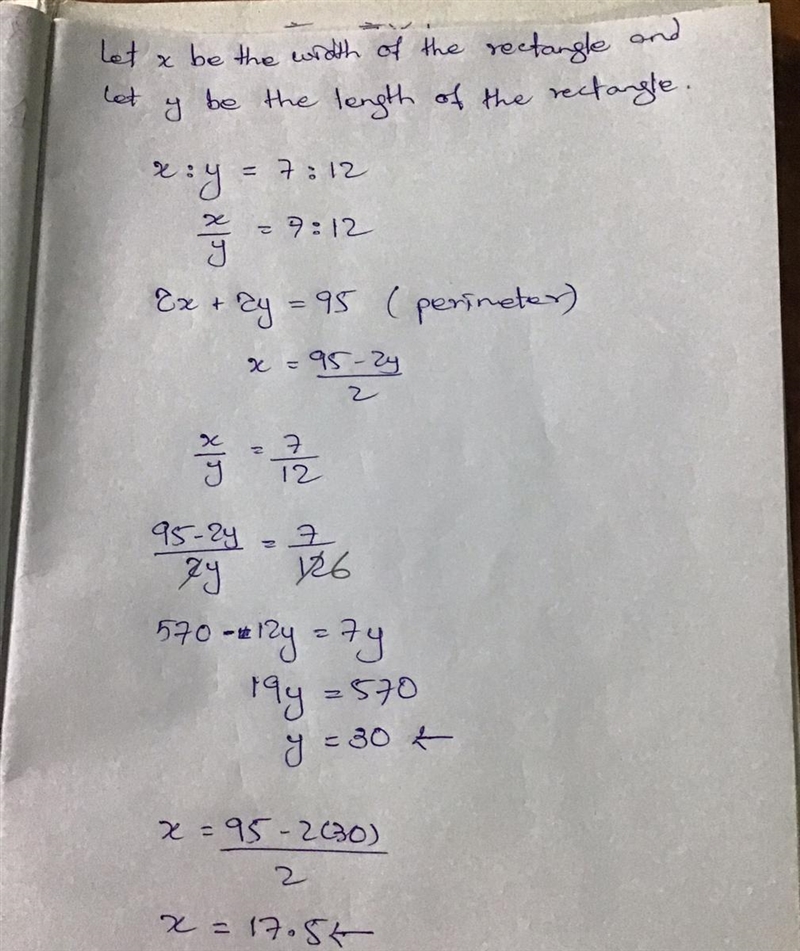 Let x be the width of the rectangle and
Let y be the length of the rectangle.
x : y = 7 : 12
x/y = 7:12
2x + 2y = 95 (perimeter)
x = (95 - 2y)/2
x/y = 7/12
(95 - 2y)/2y = 7/12 6
570 - 12y = 7y
19y = 570
y = 30 ←
x = (95 - 2(30))/2
x = 17.5 ←